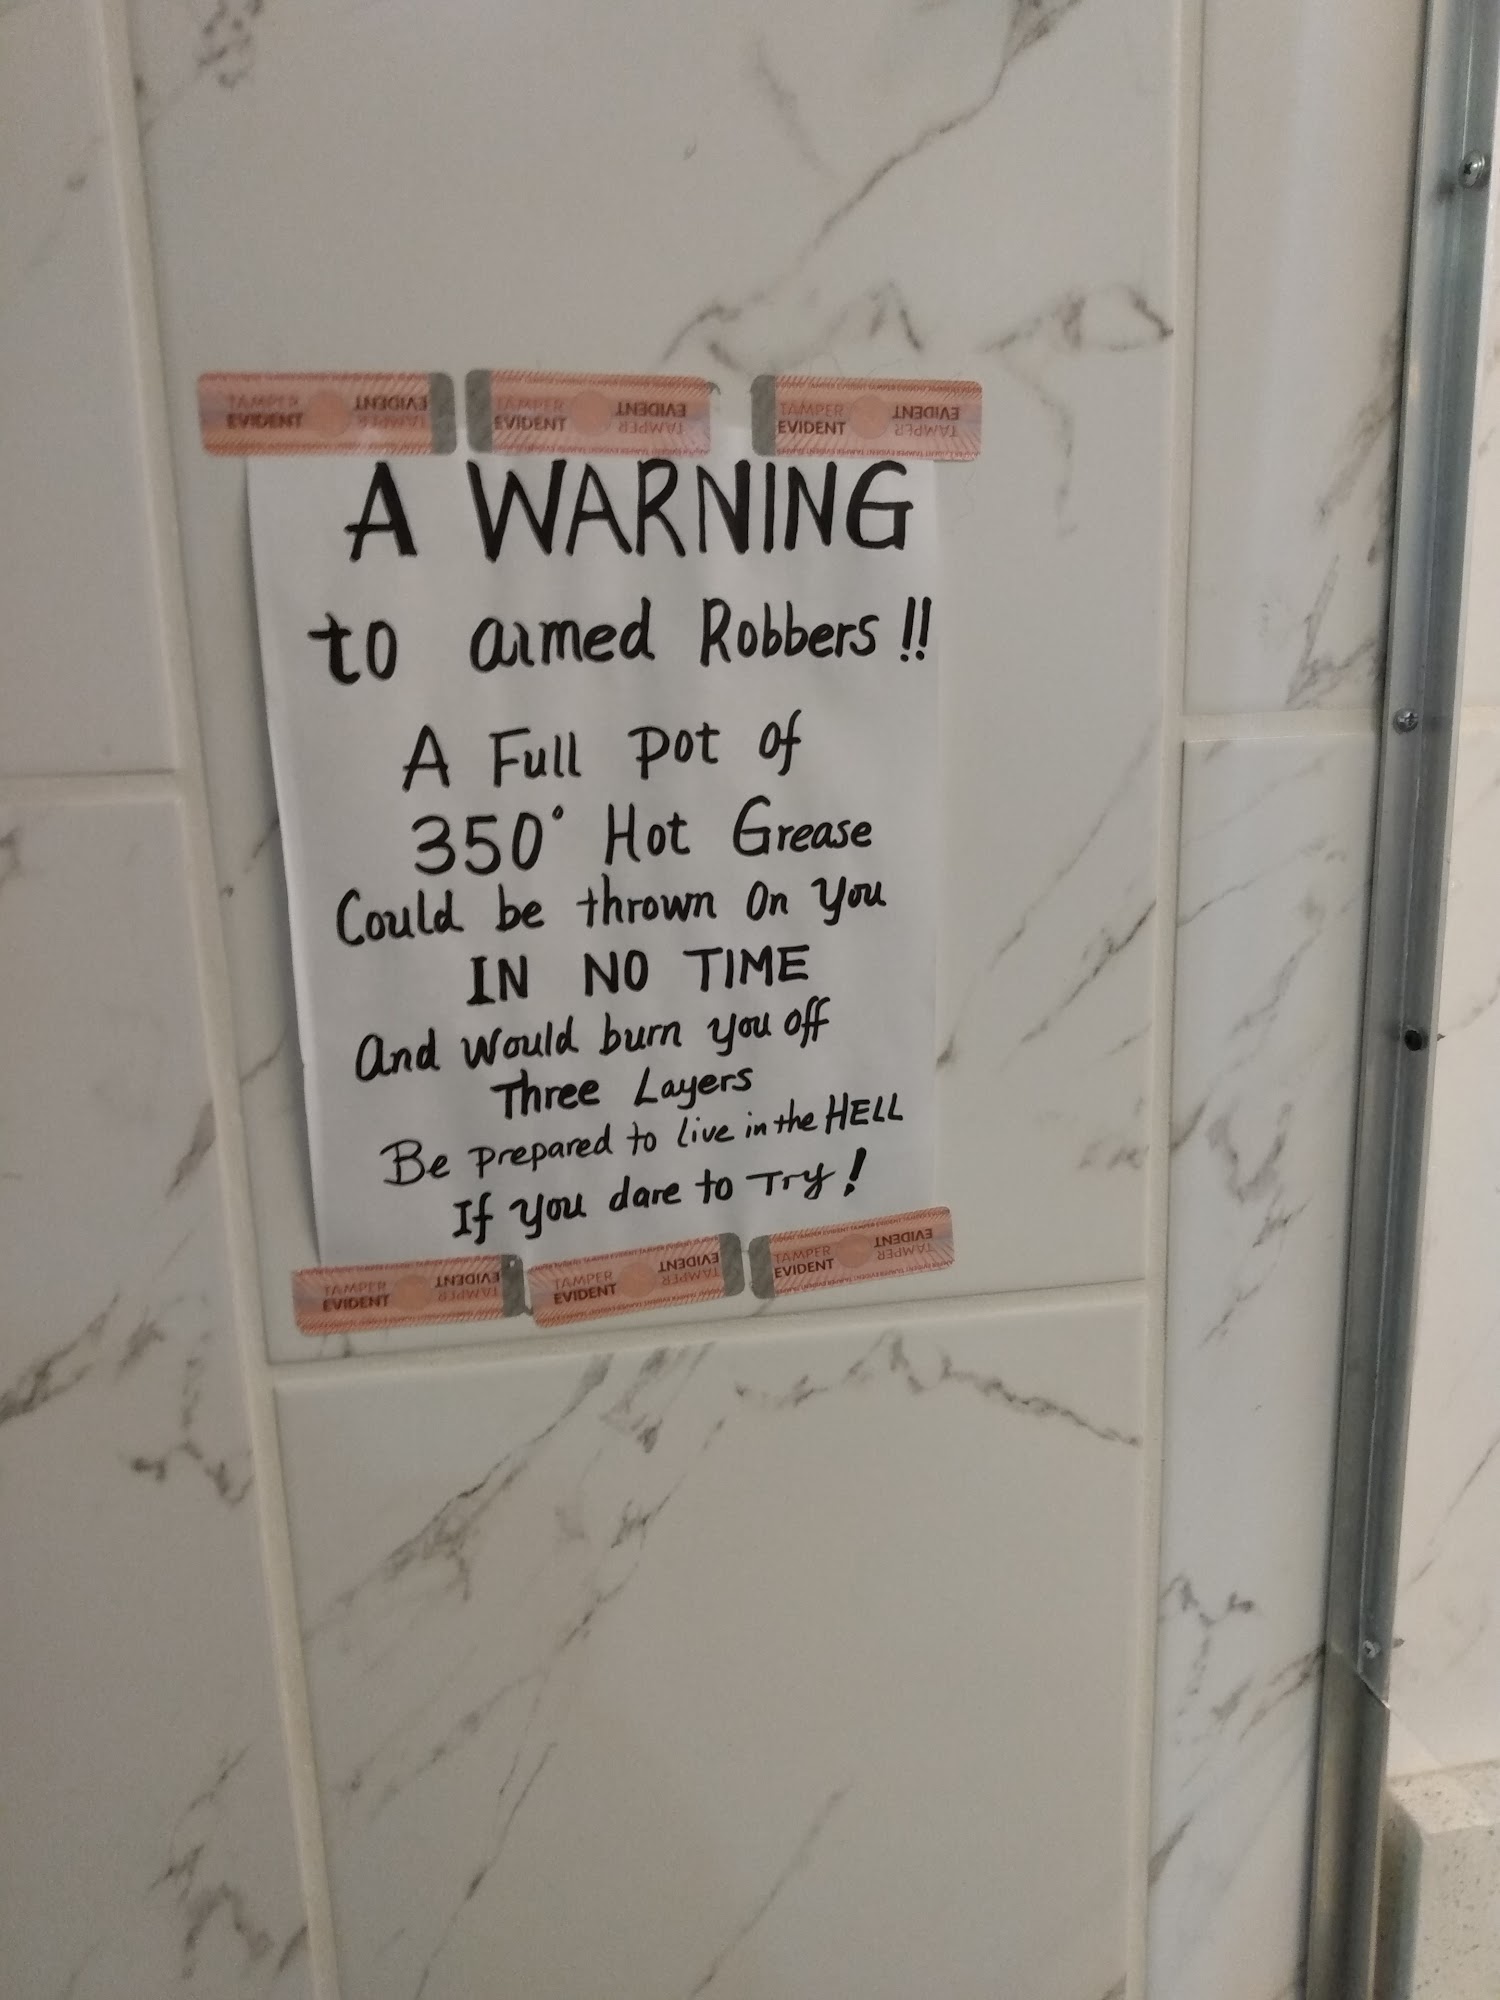 TAMPER EVIDENT TAMPER EVIDENT
TAMPER EVIDENT TAMPER EVIDENT
TAMPER EVIDENT TAMPER EVIDENT
A WARNING
to armed Robbers!!
A Full Pot of
350° Hot Grease
Could be thrown On You
IN NO TIME
And Would burn you off
Three Layers
Be Prepared to live in the HELL
If you dare to Try!
TAMPER EVIDENT TAMPER EVIDENT
TAMPER EVIDENT TAMPER EVIDENT
TAMPER EVIDENT TAMPER EVIDENT